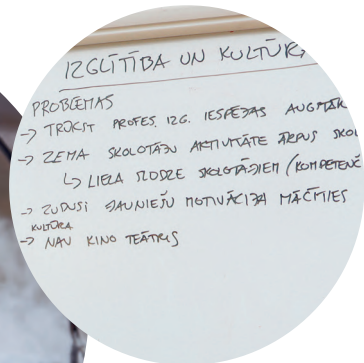 IZGLĪTĪBA UN KULTŪRA
PROBLĒMAS
-> TRŪKST PROFES. IZG. IESPĒJAS AUGSTĀK
-> ZEMA SKOLOTĀJU AKTIVITĀTE ĀRPUS SKOL
↳ LIELA SLODZE SKOLOTĀJIEM (KOMPETENČ
-> ZUDUSI JAUNIEŠU MOTIVĀCIJA MĀCĪTIES
KULTŪRA
-> NAV KINO TEĀTRIS